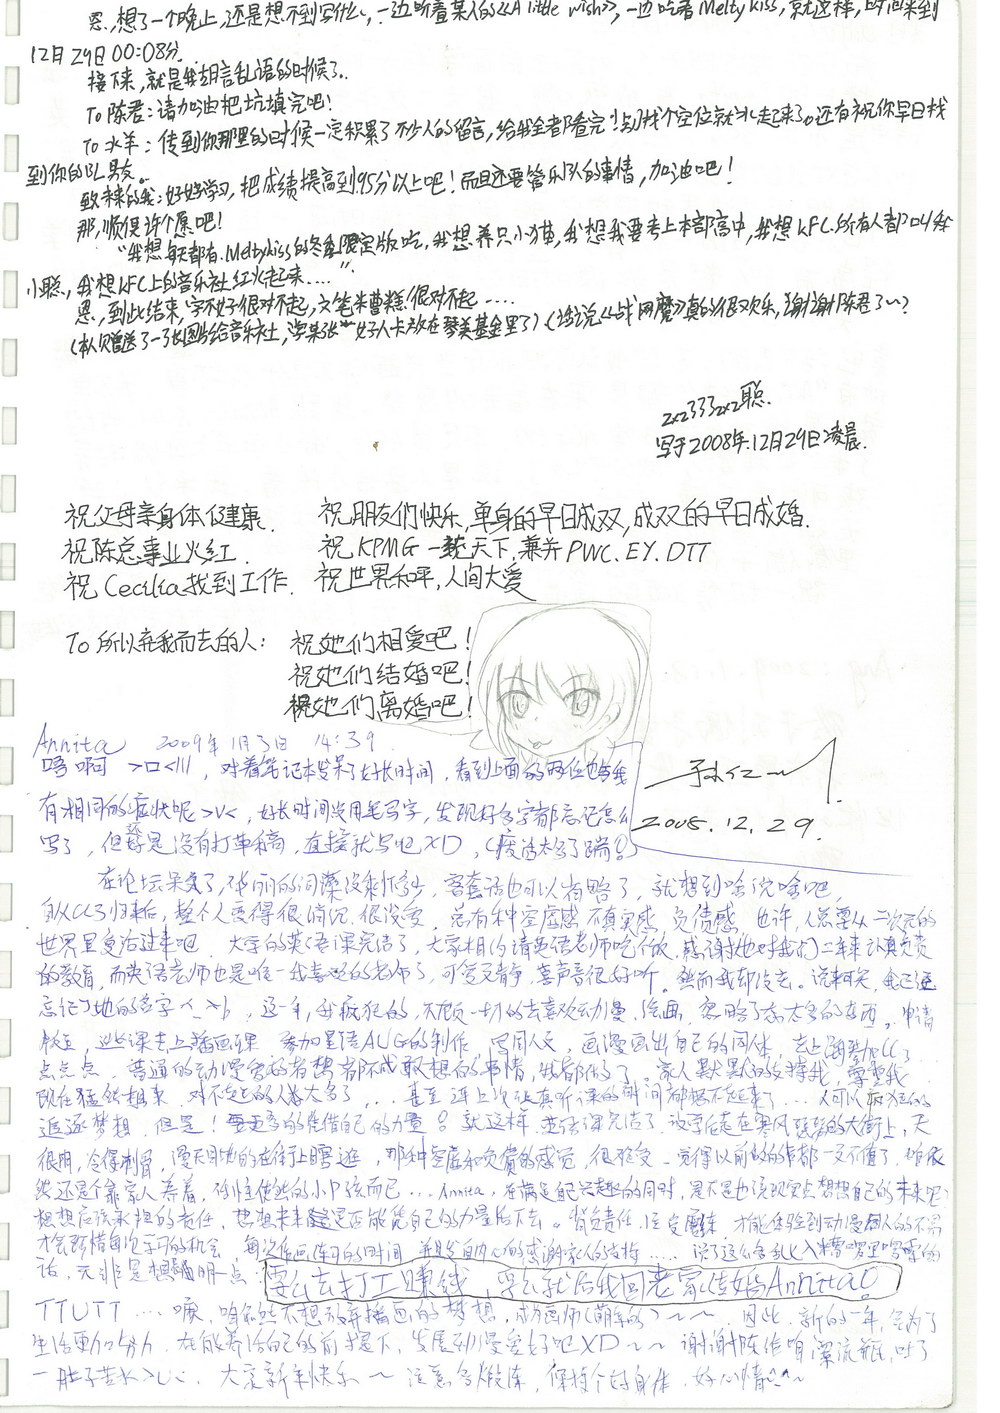 恩,想了一个晚上,还是想不到写什么,一边听着某人的《A little wish》,一边吃着Melty kiss,就这样,时间来到
12月29日00:08分.
接下来,就是我胡言乱语的时候了.
To 陈君:请加油把坑填完吧!
To 水羊:传到你那里的时候一定积累了不少人的留言,给我全都看完!找个空位就扎起来了。还有祝你早日找
到你的BL男友。
致未来的我:好好学习,把成绩提高到95分以上吧!而且还要管乐队的事情,加油吧!
那,顺便许个愿吧!
"我想每天都有Meltykiss的冬季限定版吃,我想养只小猫,我想我要考上本部高中,我想KFC所有人都叫我
小聪,我想KFC上的音乐社红火起来....".
恩,到此结束,字不好很对不起,文笔米曹糕很对不起....
(本人赠送了一张图给音乐社,学某张"好人卡放在琴美基金里了)(话说《战网魔》真的很欢乐,谢谢陈君了~)
zxz333zxz聪.
写于2008年12月29日凌晨.
祝父母亲身体健康. 祝朋友们快乐,单身的早日成双,成双的早日成婚.
祝陈总事业火红. 祝KPMG一统天下,兼并PWC.EY.DTT
祝Cecilia找到工作. 祝世界和平,人间大爱
To 所以弃我而去的人: 祝她们相爱吧!
祝她们结婚吧!
祝她们离婚吧!
2008.12.29.
Annita 2009年1月3日 14:39.
唔啊 >口<///,对着笔记本发呆了好长时间,看到上面的两位也与我
有相同的症状呢>v<,好长时间没用笔写字,发现好多字都忘记怎么
写了,但还是没有打草稿,直接就写吧XD,(废话太多了踹)
在论坛呆久了,华丽的词藻没剩下多少,客套话也可以省略了,就想到啥说啥吧,
自从CC3归来后,整个人变得很消沉,很没爱,总有种空虚感 不真实感 负债感,也许,人总要从二次元的
世界里复活过来吧 大学的英语课完结了,大家相约请英语老师吃个饭,感谢她对我们二年来认真负责
的教育,而英语老师也是唯一我喜欢的老师了,可爱文静,喜声音很好听。然而我却没去。说来可笑,自己还
忘记了她的名字,这一年,我疯狂的,不顾一切的去喜欢动漫、绘画,忽略了太多太多的东西。申请
参加星语AVG的制作 写同人文,画漫画出自己的同人本,去上海
点点点 普通的动漫爱好者想都不敢想的事情,我都做了。家人默默的支持我,
现在猛然想来,对不起的人太多了,... 甚至连上次认真听课的时间都想不起来了... 人可以疯狂的
追逐梦想,但是!更要多的凭借自己的力量。就这样,英语课完结了,放学后走在寒风瑟瑟的大街上,天
很阴,冷得刺骨,漫天目地的在街上瞎逛,那种空虚和负债的感觉,很难受,觉得以前做的都一文不值了,咱依
然还是个靠家人养着,任性使然的小孩而已... Annita,在满足自己兴趣的同时,是不是也该现实点想想自己的未来呢?
想想应该承担的责任,想想未来是在能凭自己的力量活下去。背负责任,经受磨练,才能体验到动漫人的不易
才会珍惜每次学习的机会,每次作画练习的时间,并且发自内心的感谢家人的支持.... 说了这么多乱七八糟啰里啰嗦的
话,无非是想说明一点:要么去打工赚钱,要么就活我回老家结婚Annita!
TTUTT .... 嘛,咱依然不想放弃插画的梦想,成画师(萌军的)~~ 因此,新的一年,会为了
生活更加努力,在能养活自己的前提下,发展动漫爱好吧XD~~ 谢谢陈作咱漂流瓶,吐了
一肚子苦水>U<、大家新年快乐~ 注意多锻炼,保持个好身体,好心情^^~